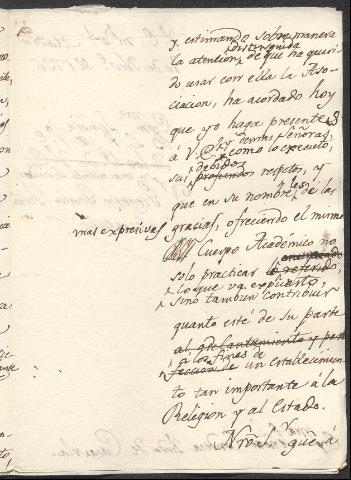 y estimando sobre manera
distinguida
la atencion de que ha queri-
do usar con ella la Aso-
ciacion, ha acordado hoy
que yo haga presente
á V. y demas Señoras,
como lo executo,
debidos
sus profundos respetos, y
que en su nombre les dé las
mas expresivas
gracias, ofreciendo el mismo
Cuerpo Académico no
solo practicar lo referido,
lo que va expuesto,
sino tambien contribuir
quanto esté de su parte
al adelantamiento y per-
á los fines de
feccion de un establecimien-
to tan importante á la
Religion y al Estado.
Nro. Sr. gue. á